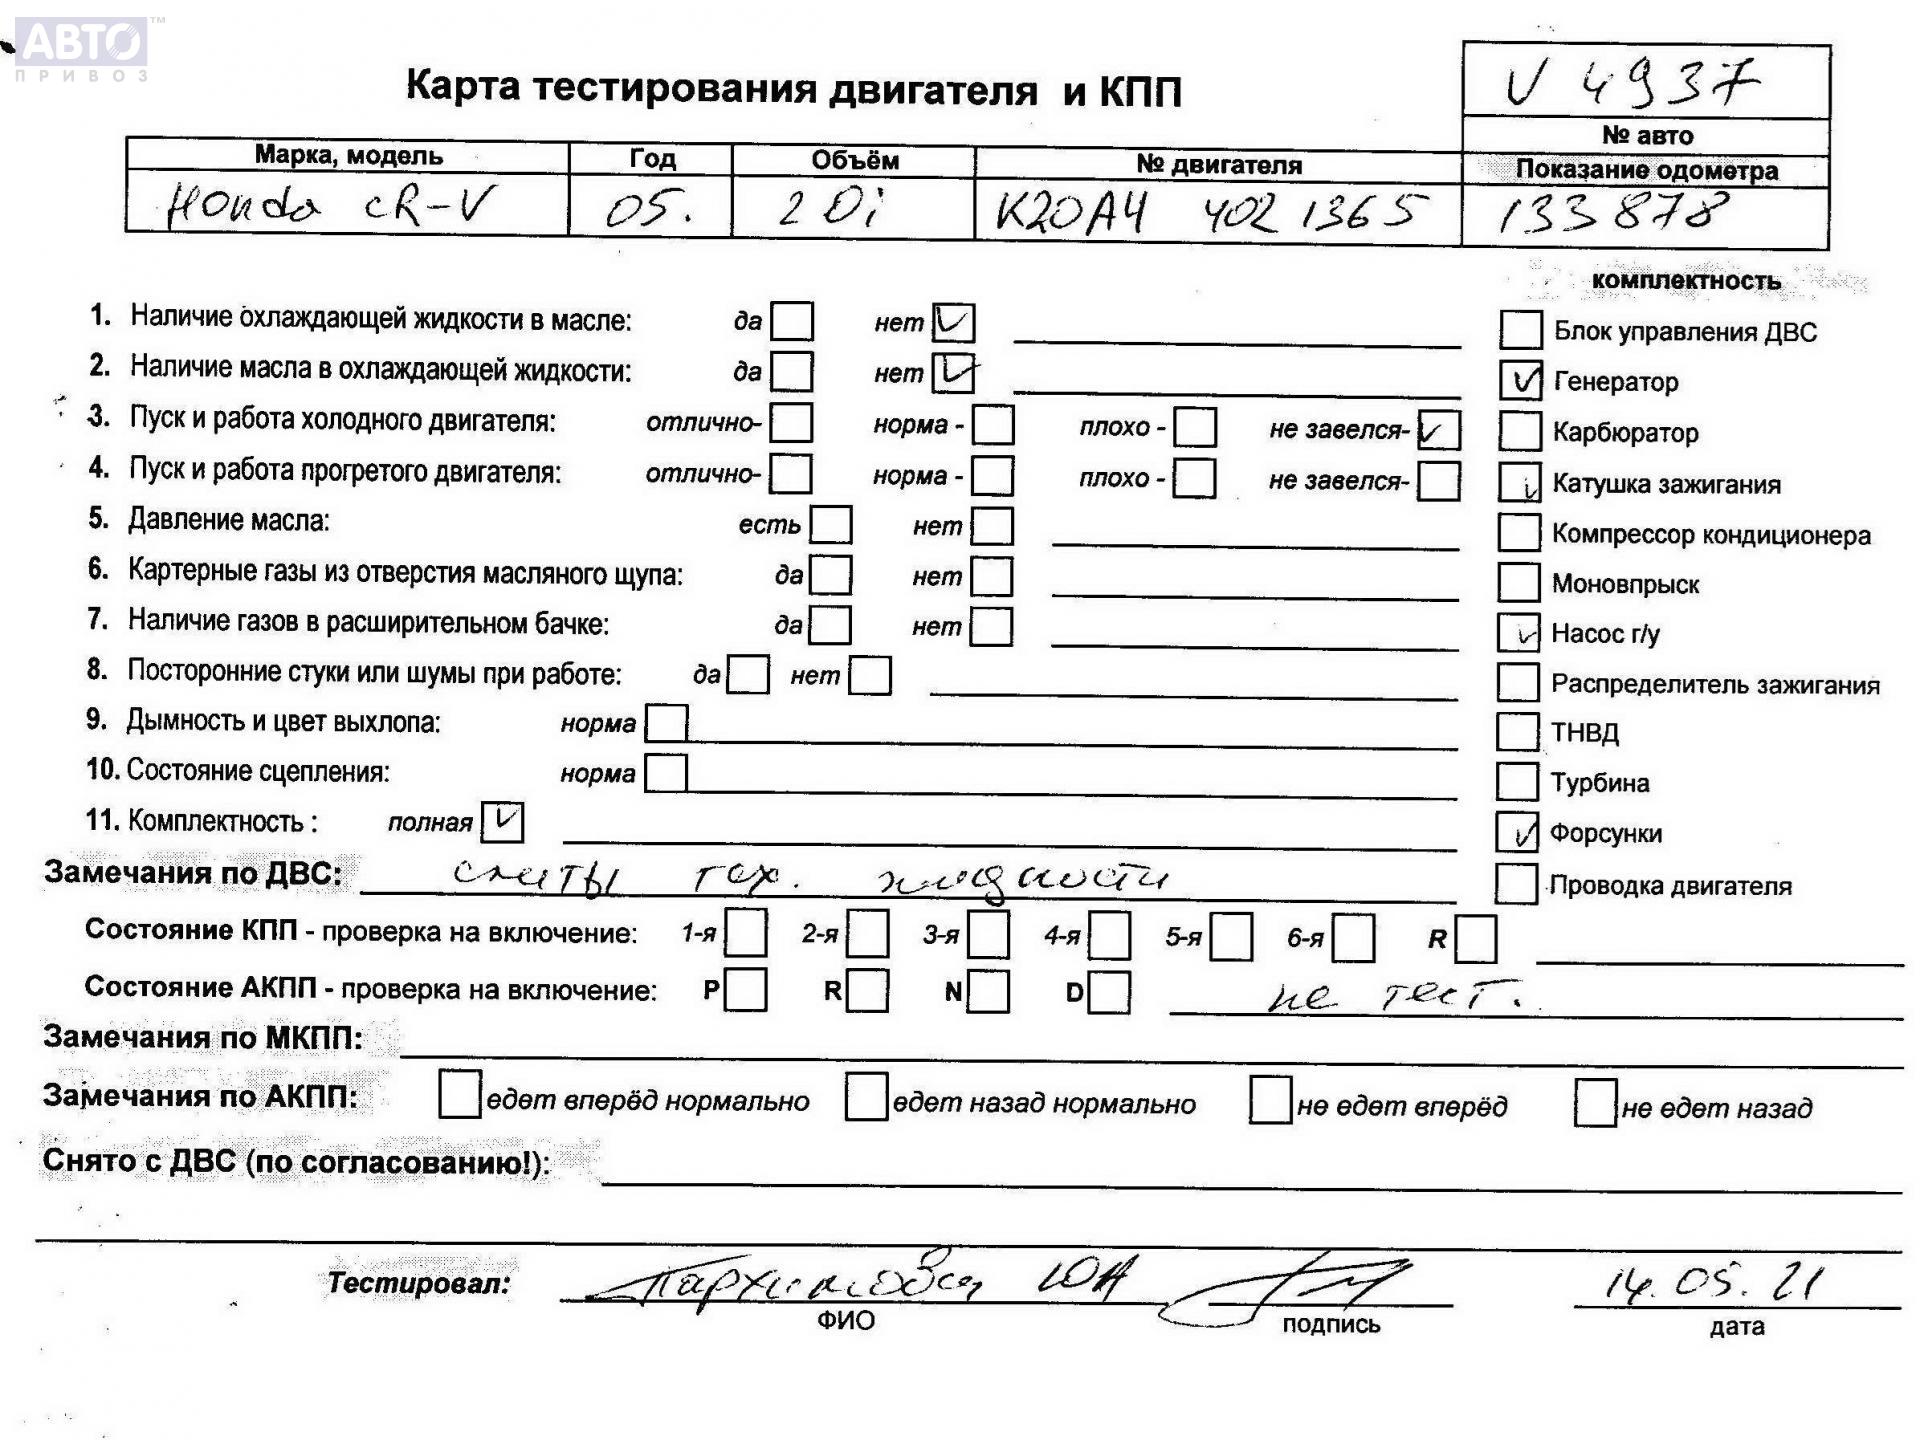 АВТО™
ПРИВОЗ
V 4937
Карта тестирования двигателя и КПП
№ авто
Марка, модель Год Объём № двигателя Показание одометра
Honda CR-V 05. 2 0i K20A4 4021365 133878
комплектность
1. Наличие охлаждающей жидкости в масле: да нет ✓ Блок управления ДВС
2. Наличие масла в охлаждающей жидкости: да нет ✓ ✓ Генератор
3. Пуск и работа холодного двигателя: отлично- норма - плохо - не завелся- ✓ Карбюратор
4. Пуск и работа прогретого двигателя: отлично- норма - плохо - не завелся- ✓ Катушка зажигания
5. Давление масла: есть нет Компрессор кондиционера
6. Картерные газы из отверстия масляного щупа: да нет Моновпрыск
7. Наличие газов в расширительном бачке: да нет ✓ Насос г/у
8. Посторонние стуки или шумы при работе: да нет Распределитель зажигания
9. Дымность и цвет выхлопа: норма ТНВД
10. Состояние сцепления: норма Турбина
11. Комплектность : полная ✓ ✓ Форсунки
Замечания по ДВС: слиты тех. жидкости Проводка двигателя
Состояние КПП - проверка на включение: 1-я 2-я 3-я 4-я 5-я 6-я R
Состояние АКПП - проверка на включение: P R N D не тест.
Замечания по МКПП:
Замечания по АКПП: едет вперёд нормально едет назад нормально не едет вперёд не едет назад
Снято с ДВС (по согласованию!):
Тестировал: ЮА 14.05.21
ФИО подпись дата